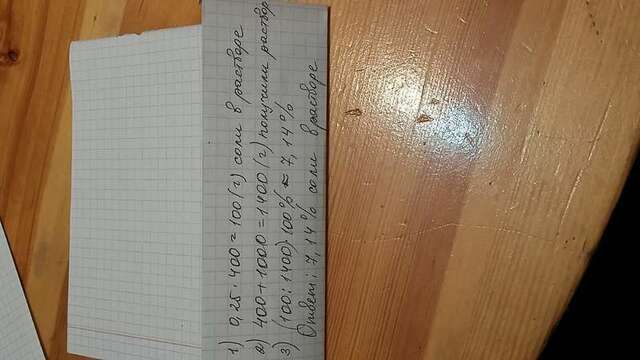 1) 0,25 · 400 = 100 (г) соли в растворе
2) 400 + 1000 = 1400 (г) получили раствор
3) (100 : 1400) · 100% ≈ 7,14%
Ответ: 7,14% соли в растворе